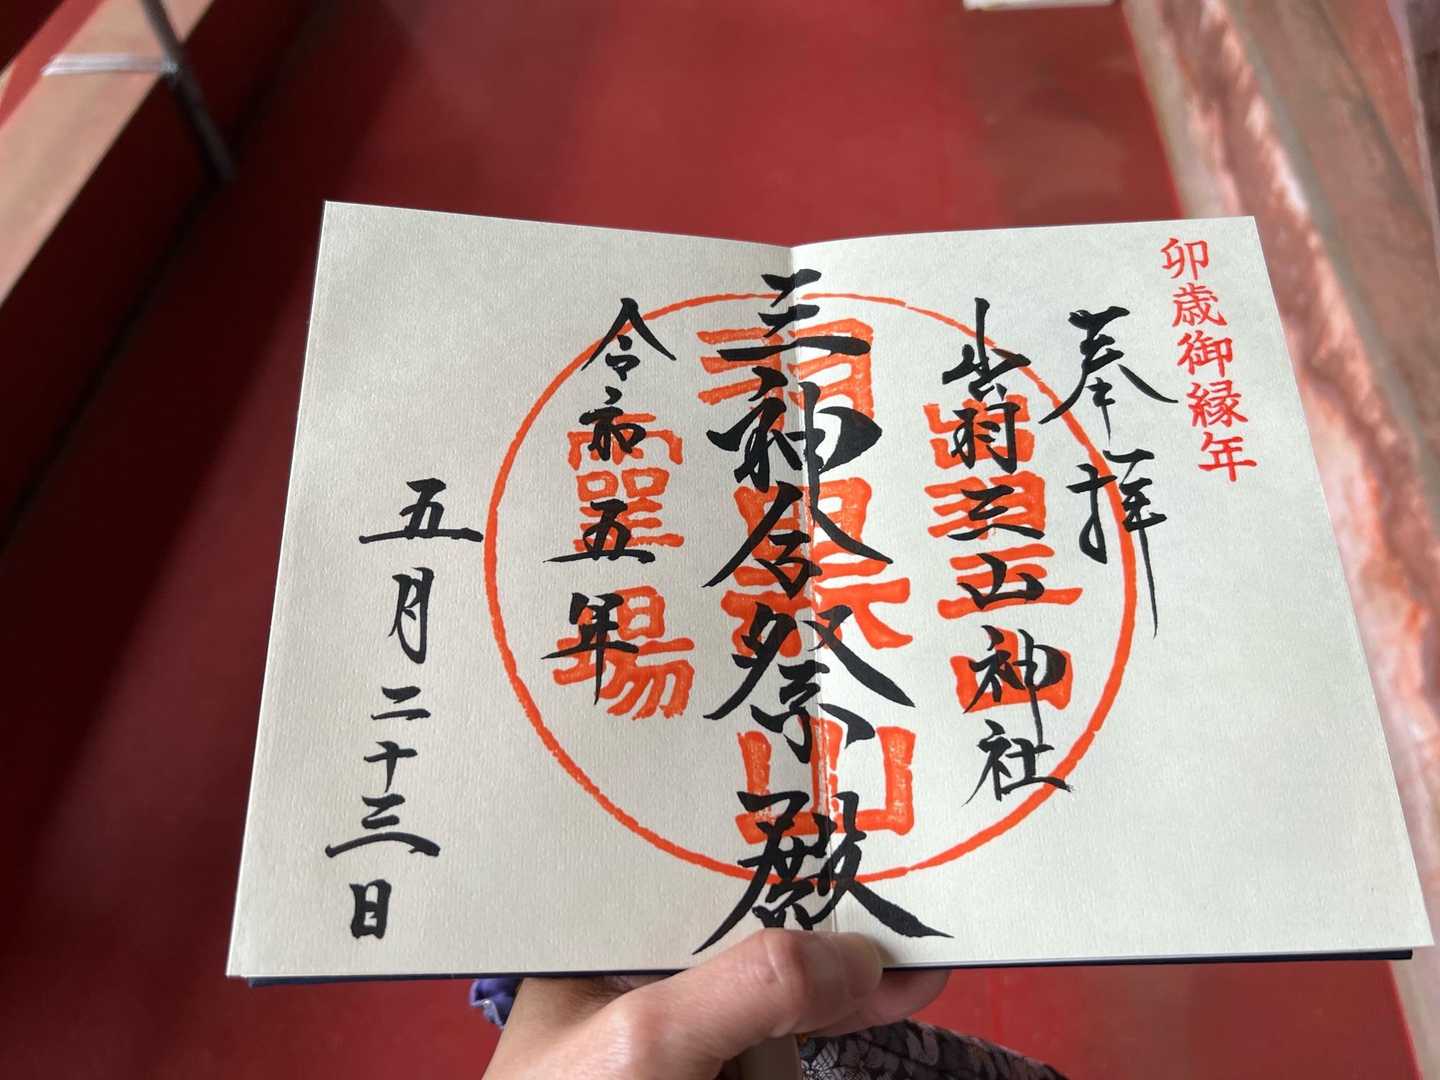 卯歳御縁年
奉拝
出羽三山神社
出羽三山
三神合祭殿
令和五年
霊場
五月二十三日